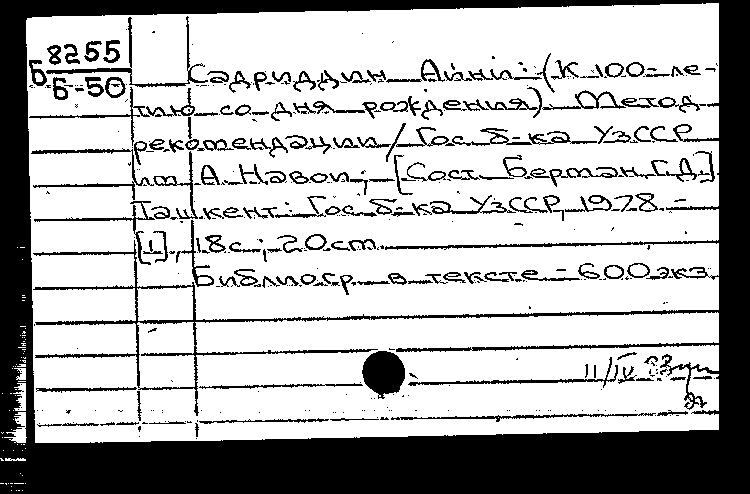 Б 8255
Б-50
Садриддин Айни: (К 100-ле-
тию со дня рождения). Метод
рекомендации / Гос. б-ка УзССР
им А. Навои; [Сост. Берман Г.Д.]
Ташкент: Гос. б-ка УзССР, 1978 -
[1], 18с; 20см
Библиогр. в тексте - 600 экз.
11/IV 83